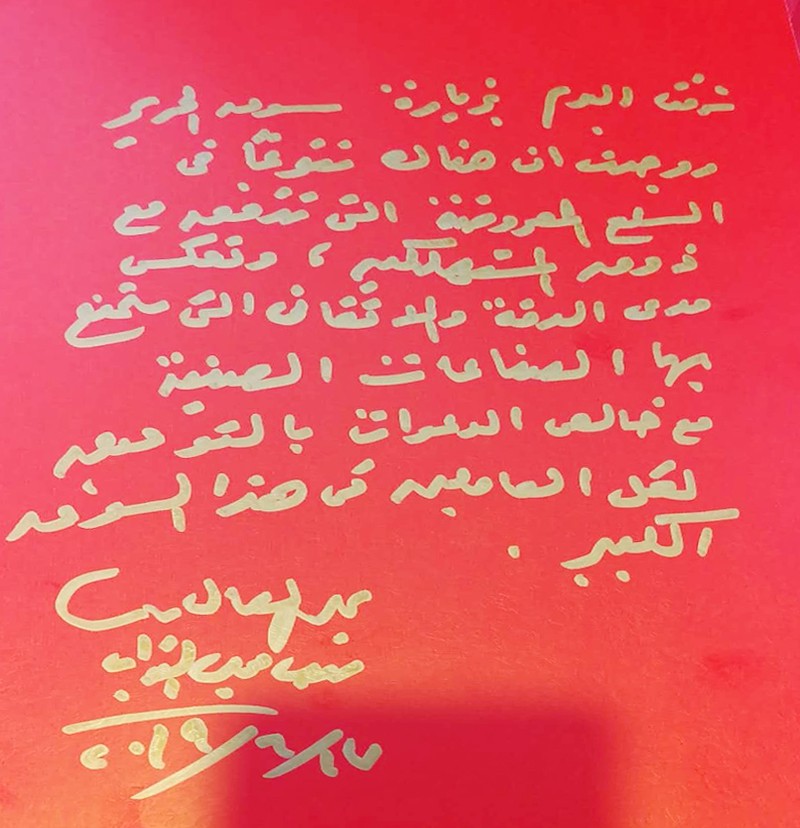 شرفت اليوم بزيارة سوق الحرير
ووجدت ان هناك تنوعًا فى
السلع المعروضة التى تتفق مع
ذوق المستهلكين ، وتعكس
مدى الدقة والاتقان التى تتمتع
بها الصناعات الصينية
مع خالص الدعوات بالتوفيق
لكل العاملين فى هذا السوق
الكبير .
مجلس النواب
٢٠١٩/٢/٢٧